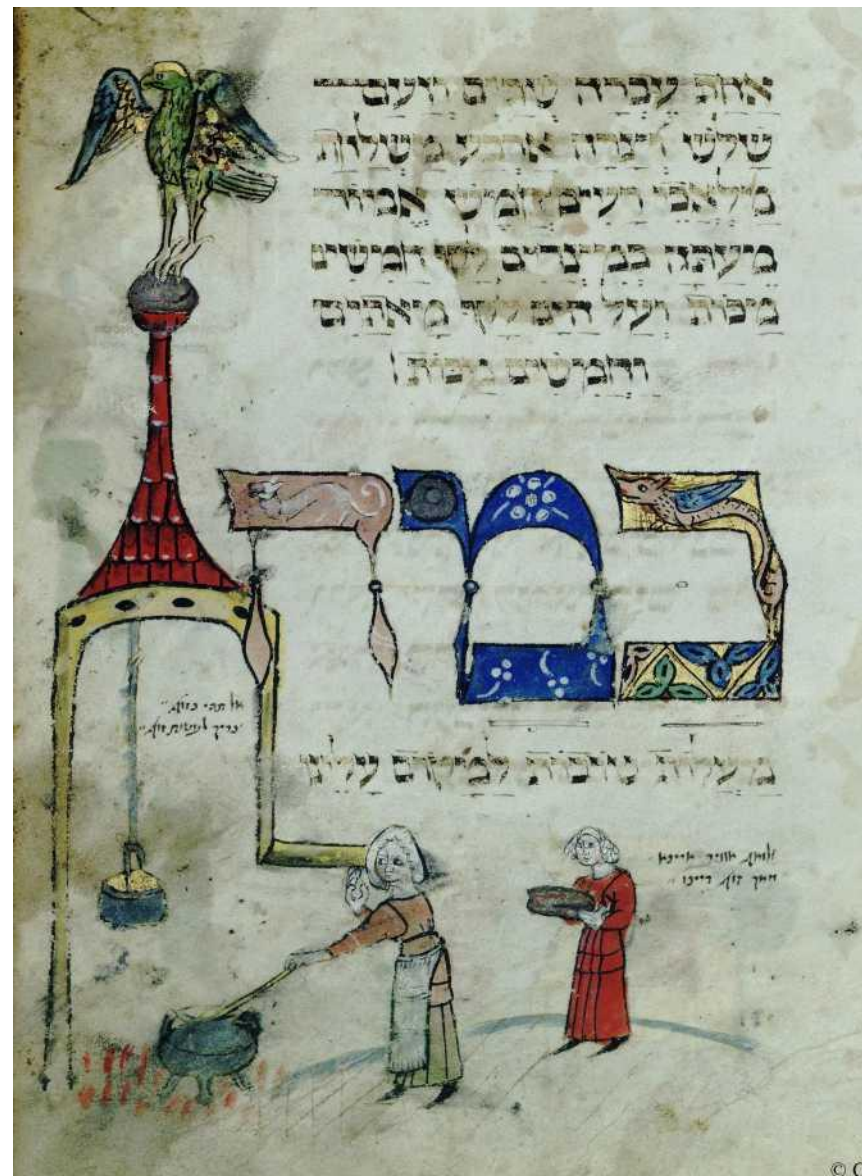 אחת עברה שתים וזעם
שלש וצרה ארבע משלחת
מלאכי רעים חמש אמור
מעתה במצרים לקו חמישים
מכות ועל הים לקו מאתים
וחמישים מכות
כמה
מעלות טובות למקום עלינו
© C